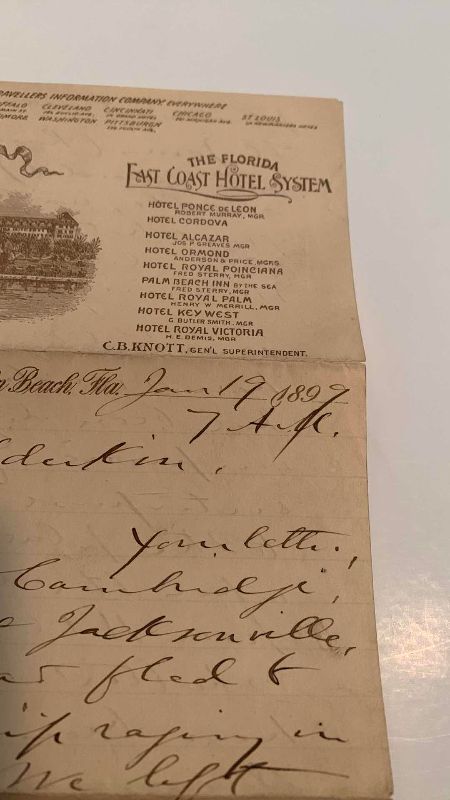 TRAVELLERS INFORMATION COMPANY EVERYWHERE
CLEVELAND CINCINNATI CHICAGO ST. LOUIS
WASHINGTON PITTSBURGH
THE FLORIDA
EAST COAST HOTEL SYSTEM
HOTEL PONCE DE LEON
ROBERT MURRAY, MGR.
HOTEL CORDOVA
HOTEL ALCAZAR
JOS P GREAVES MGR
HOTEL ORMOND
ANDERSON & PRICE, MGRS.
HOTEL ROYAL POINCIANA
FRED STERRY, MGR.
PALM BEACH INN BY THE SEA
FRED STERRY, MGR
HOTEL ROYAL PALM
HENRY W MERRILL, MGR.
HOTEL KEY WEST
G. BUTLER SMITH, MGR
HOTEL ROYAL VICTORIA
H. E. BEMIS, MGR
C.B. KNOTT, GEN'L SUPERINTENDENT.
Beach, Fla. Jan 19 1899
7 A.M.
Your letter,
Cambridge,
Jacksonville,
fled to
raging in
We left